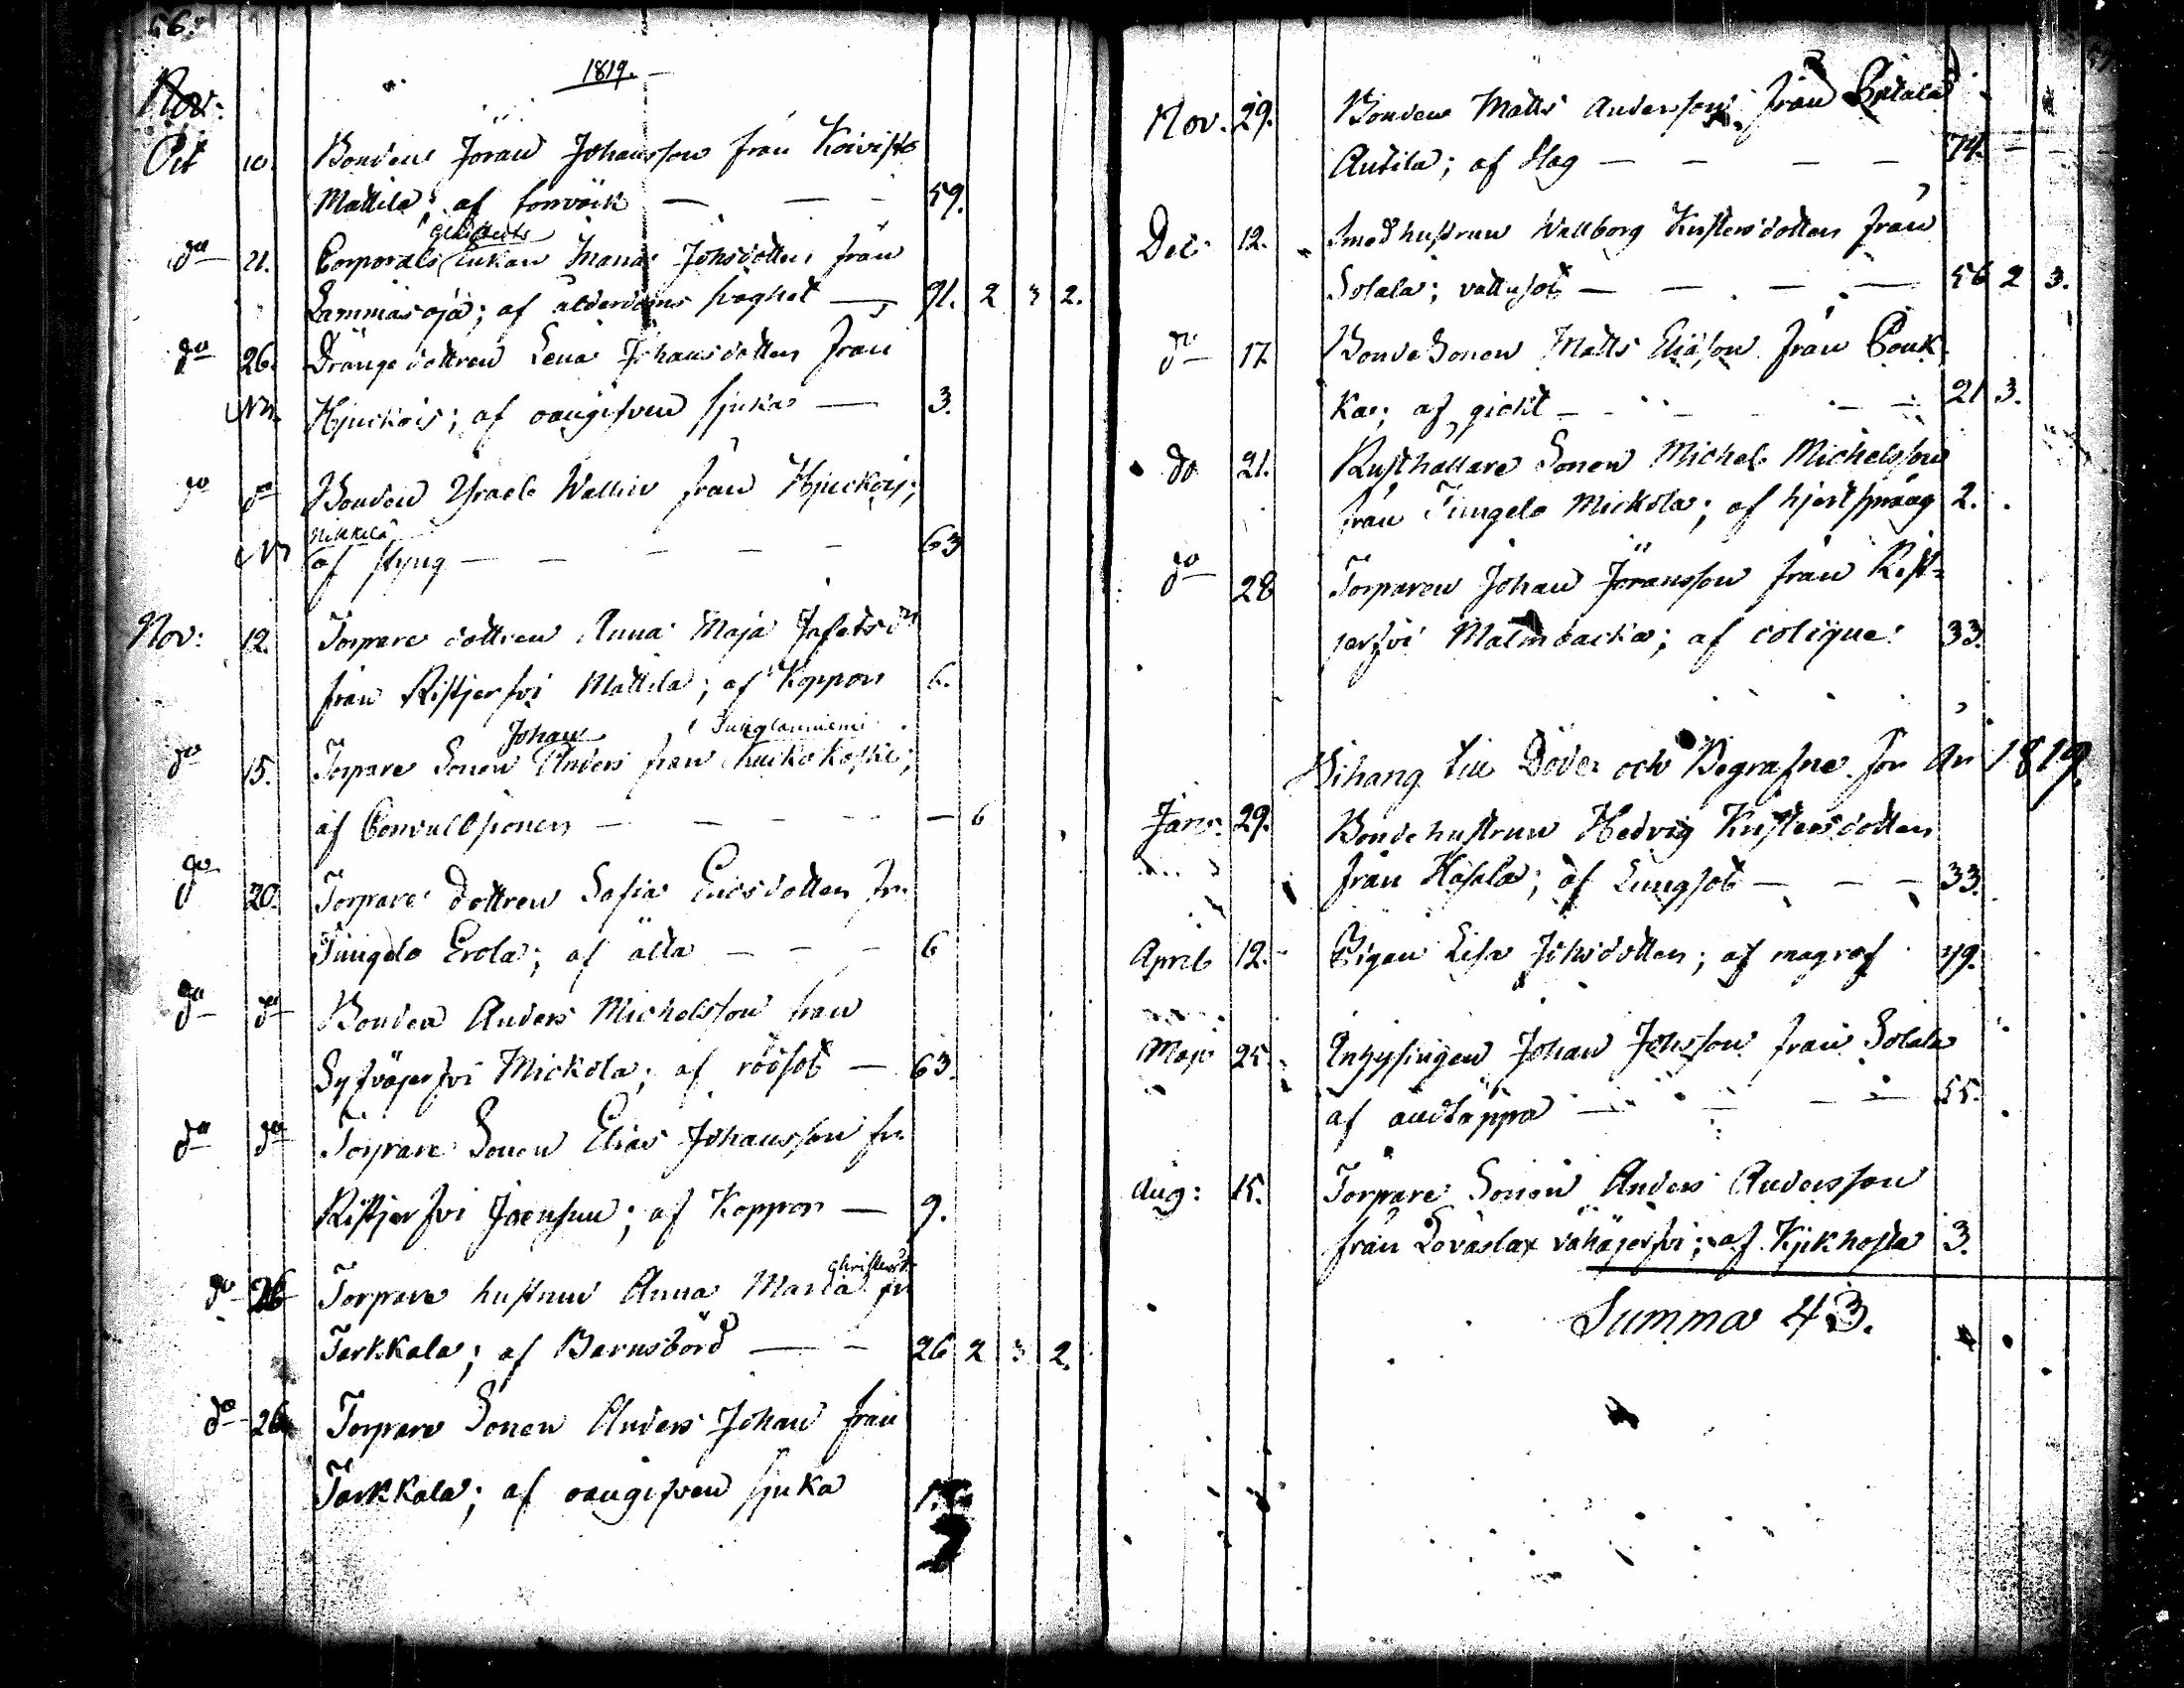 56.
1819.
Nov:
Oct 10. Bonden Jöran Johansson från Koivisto
Mattila; af torrvärk — — — 59.
Gehörts
do 21. Corporals Enkan Maria Johsdotter från
Lammasoja; af ålderdoms svaghet — 91. 2 3 2.
do 26. Drängedottren Lena Johansdotter från
Hjuckois; af oangifven sjuka — 3.
do do Bonden Israel Wallin från Hjuckois;
Nikkilä
af styng — — — — — 63
Nov: 12. Torpare dottren Anna Maja Jafetsdr
från Ristjerfvi Mattila; af Koppor 6.
Johan Junglanniemi
do 15. Torpare Sonen Anders från Kuckokoski;
af Convulsioner — — — — — 6
do 20. Torpare Dottren Sofia Ericsdotter fr.
Jungelo Erola; af älta — — — 6
do do Bonden Anders Michelsson från
Syfväjerfvi Mickola; af rödsot — 63.
do do Torpare Sonen Elias Johansson fr.
Ristjerfvi Joensuu; af Koppor — 9.
Christersd.
do 26 Torpare hustrun Anna Maria fr.
Tarkkala; af Barnsbörd — — 26 2 3 2.
do 26 Torpare Sonen Anders Johan från
Tarkkala; af oangifven sjuka 1.
Nov. 29. Bonden Matts Andersson från
Antila; af slag — — — — 74.
Dec. 12. Smedhustrun Wallborg Kristersdotter från
Solala; vattusot — — — — 56 2 3.
do 17. BondeSonen Matts Eliasson från Pouk-
ka; af gickt — — — — 21 3.
do 21. Rusthållare Sonen Michel Michelsson
från Jungelo Mickola; af hjertsprång 2.
do 28 Torparen Johan Jöransson från Rist-
jerfvi Malmbacka; af colique 33.
Bihang till Döde och Begrafne för År 1819.
Janr. 29. Bondehustrun Hedvig Kristersdotter
från Hasala; af Lungsot — — — 33.
April 12. Pigan Lisa Johsdotter; af magref 49.
Maji 25. Inhysingen Johan Johsson från Solala
af andtäppa — — — — 55.
Aug: 15. Torpare Sonen Anders Andersson
från Lovaslax vähäjerfvi; af Kikhosta 3.
Summa 43.